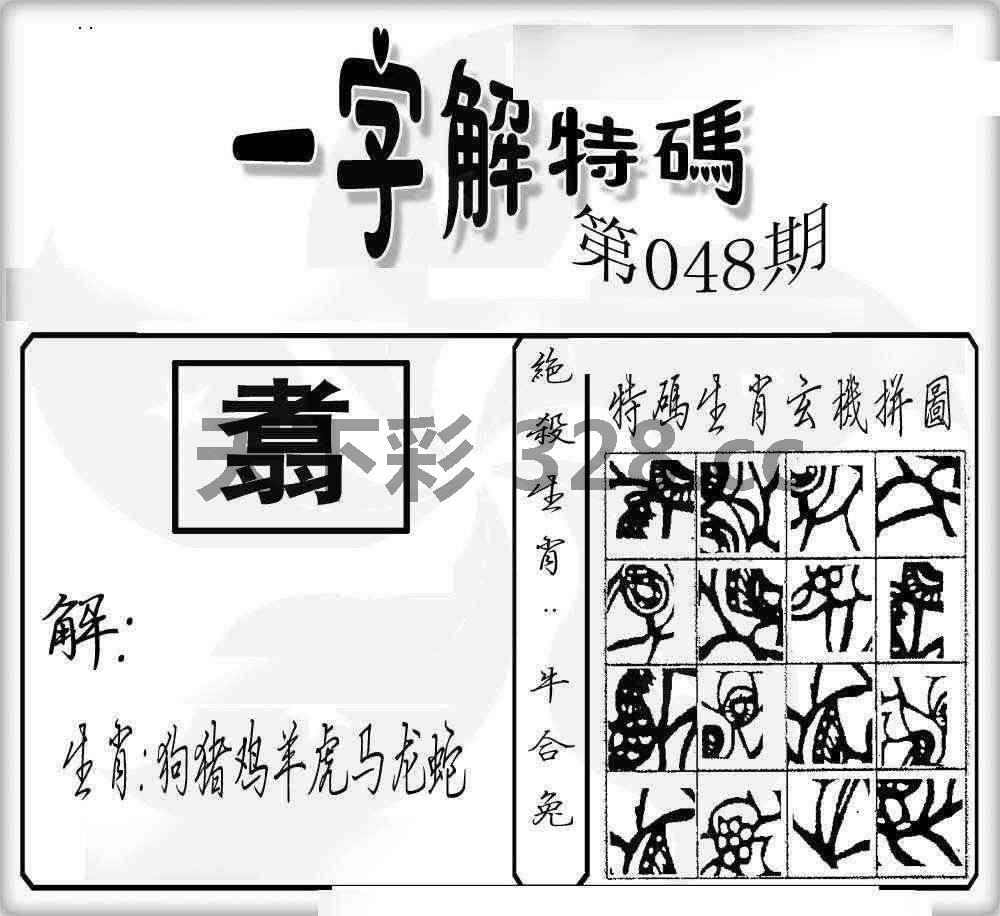 一字解特碼
第048期
翥
天下彩 328.cc
解:
生肖:狗猪鸡羊虎马龙蛇
絕殺生肖:牛合兔
特碼生肖玄機拼圖